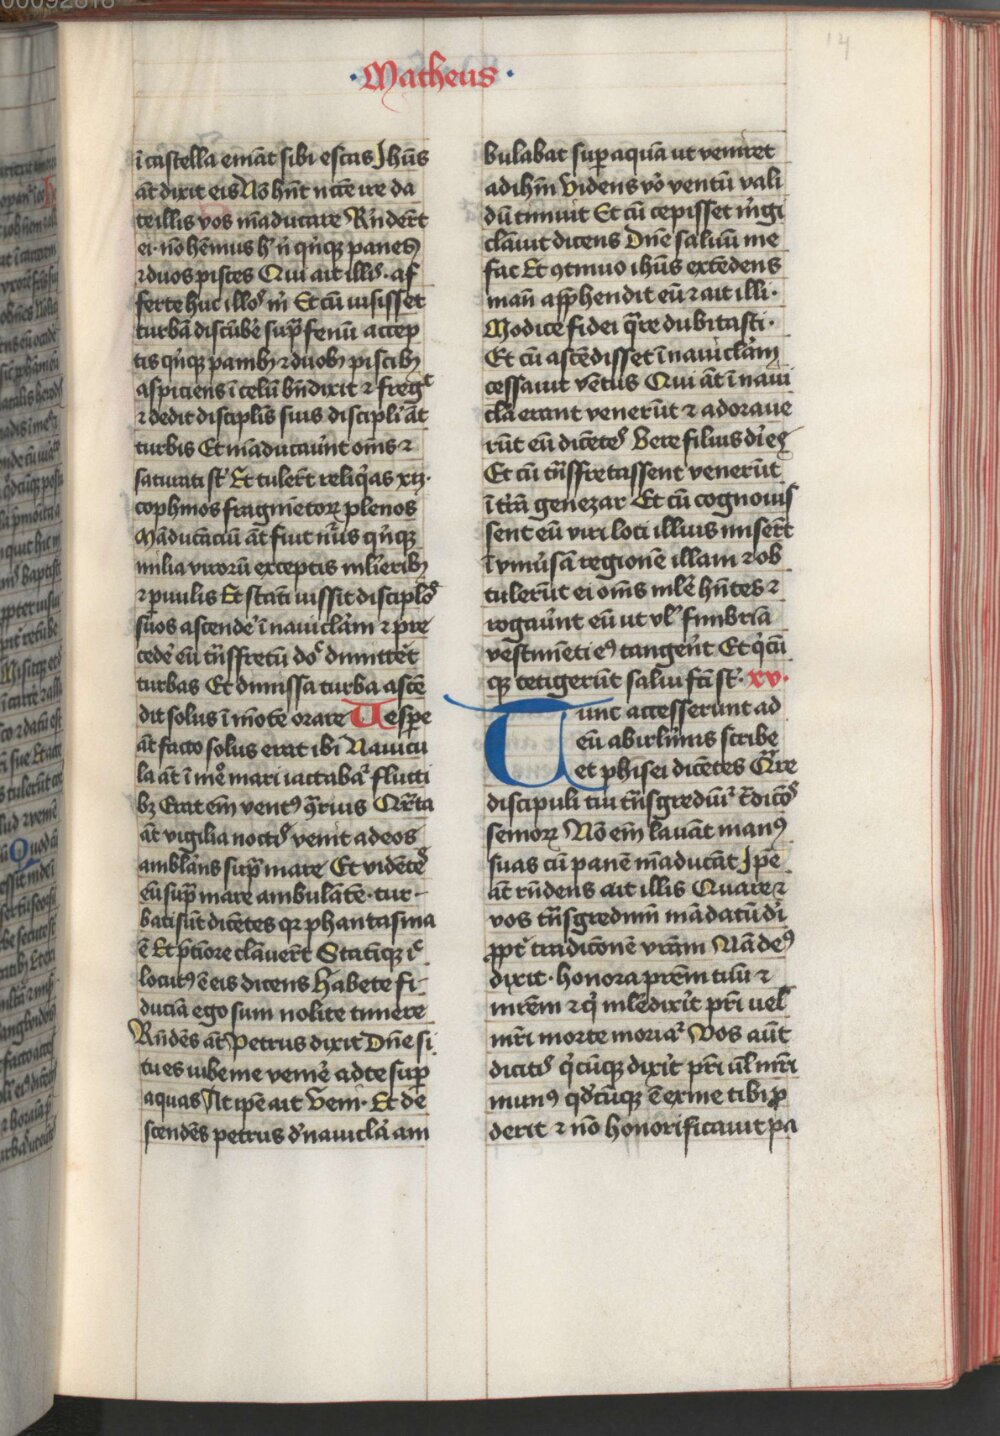 ·Matheus·
14
ī castella emāt sibi escas Jhūs
āt dixit eis Nō hn̄t nc̄ce ire da
te illis vos māducare Rn̄derēt
ei· nō hēmus h' n̄ qn̄qꝫ panes
⁊ duos pisces Qui ait ill'· af
ferte huc illos m' Et cū iusisset
turbā discūbe' sup̄ fenū accep
tis qn̄qꝫ panibꝫ ⁊ duobꝫ piscibꝫ
aspiciens ī celū bn̄dixit ⁊ freg't
⁊ dedit disciplīs suis discipli āt
turbis Et māducauūt om̄s ⁊
saturati st' Et tulerūt reliq̄as xij·
cophinos fragmētoꝝ plenos
Māducāciū āt fiut nu'us qn̄qꝫ
milia virorū exceptis ml'ieribꝫ
⁊ p̱uulis Et statī iussit disciplos
suos ascende' ī nauicla'm ⁊ pre
cede' eū trn̄sfretū do' dimittēt
turbas Et dimissa turba ascē
dit solus ī mōte orare Uespe
āt facto solus erat ibi Nauicu
la āt ī me' mari iactaba' flucti
bꝫ Erat em̄ vent9 q̄rius Qr̄ta
āt vigilia noct' venit ad eos
amblāns sup̄ mare Et vidētes
eū sup̄ mare ambulātē· tur-
bati sūt dicētes qꝛ phantasma
ē Et p̄ timore clauer̄t Statīqꝫ ī'
locut9 ē eis dicens Habete fi-
duciā ego sum nolite timere
Rn̄dēs āt Petrus dixit Dn̄e si
tu es iube me venire ad te sup̄
aquas At ip̄e ait Veni· Et de-
scendēs petrus d' nauicla' am
bulabat sup̱ aquā ut veniret
ad ihm̄ Videns vo' ventū vali
dū timuit Et cū cepisset m'gi
clāuit dicens Dn̄e saluū me
fac Et ꝯtinuo ihūs extēdens
manū app̱hendit eū ⁊ ait illi·
Modice fidei q̄re dubitasti·
Et cū ascēdisset ī nauiclām
cessauit vētus Qui āt ī naui
cla erant venerūt ⁊ adoraue
rūt eū dicētes Vere filius di' es
Et cū trn̄sfretassent venerūt
ī tr̄ā genezar Et cū cognouis
sent eū viri loci illius miserūt
ī vniu'sā regionē illam ⁊ ob
tulerūt ei om̄s male hn̄tes ⁊
rogaūnt eū ut vl' fimbriā
vestimēti e9 tangeūt Et q'cū
qꝫ tetigerūt salui fc̄i st'· xv·
Tunc accesserunt ad
eū ab irl'imis scribe
et phisei dicētes Q̄re
discipuli tui trn̄sgrediū' t̄dicōs
senioꝝ Nō em̄ lauāt man9
suas cū panē māducāt Jpē
āt rn̄dens ait illis Quare ⁊
vos trn̄sgredimī mādatū di'
p̱pt' tradicōnē vr̄am Nā de9
dixit· honora pr̄em tuū ⁊
mr̄em ⁊ q' ml'edix'it pr̄i uel
mr̄i morte moria' Vos aūt
dicitis q'cūqꝫ dix'it pr̄i ūl mr̄i
mun9 qd'cūqꝫ ē ex me tibi p̱
derit ⁊ nō honorificauit pa